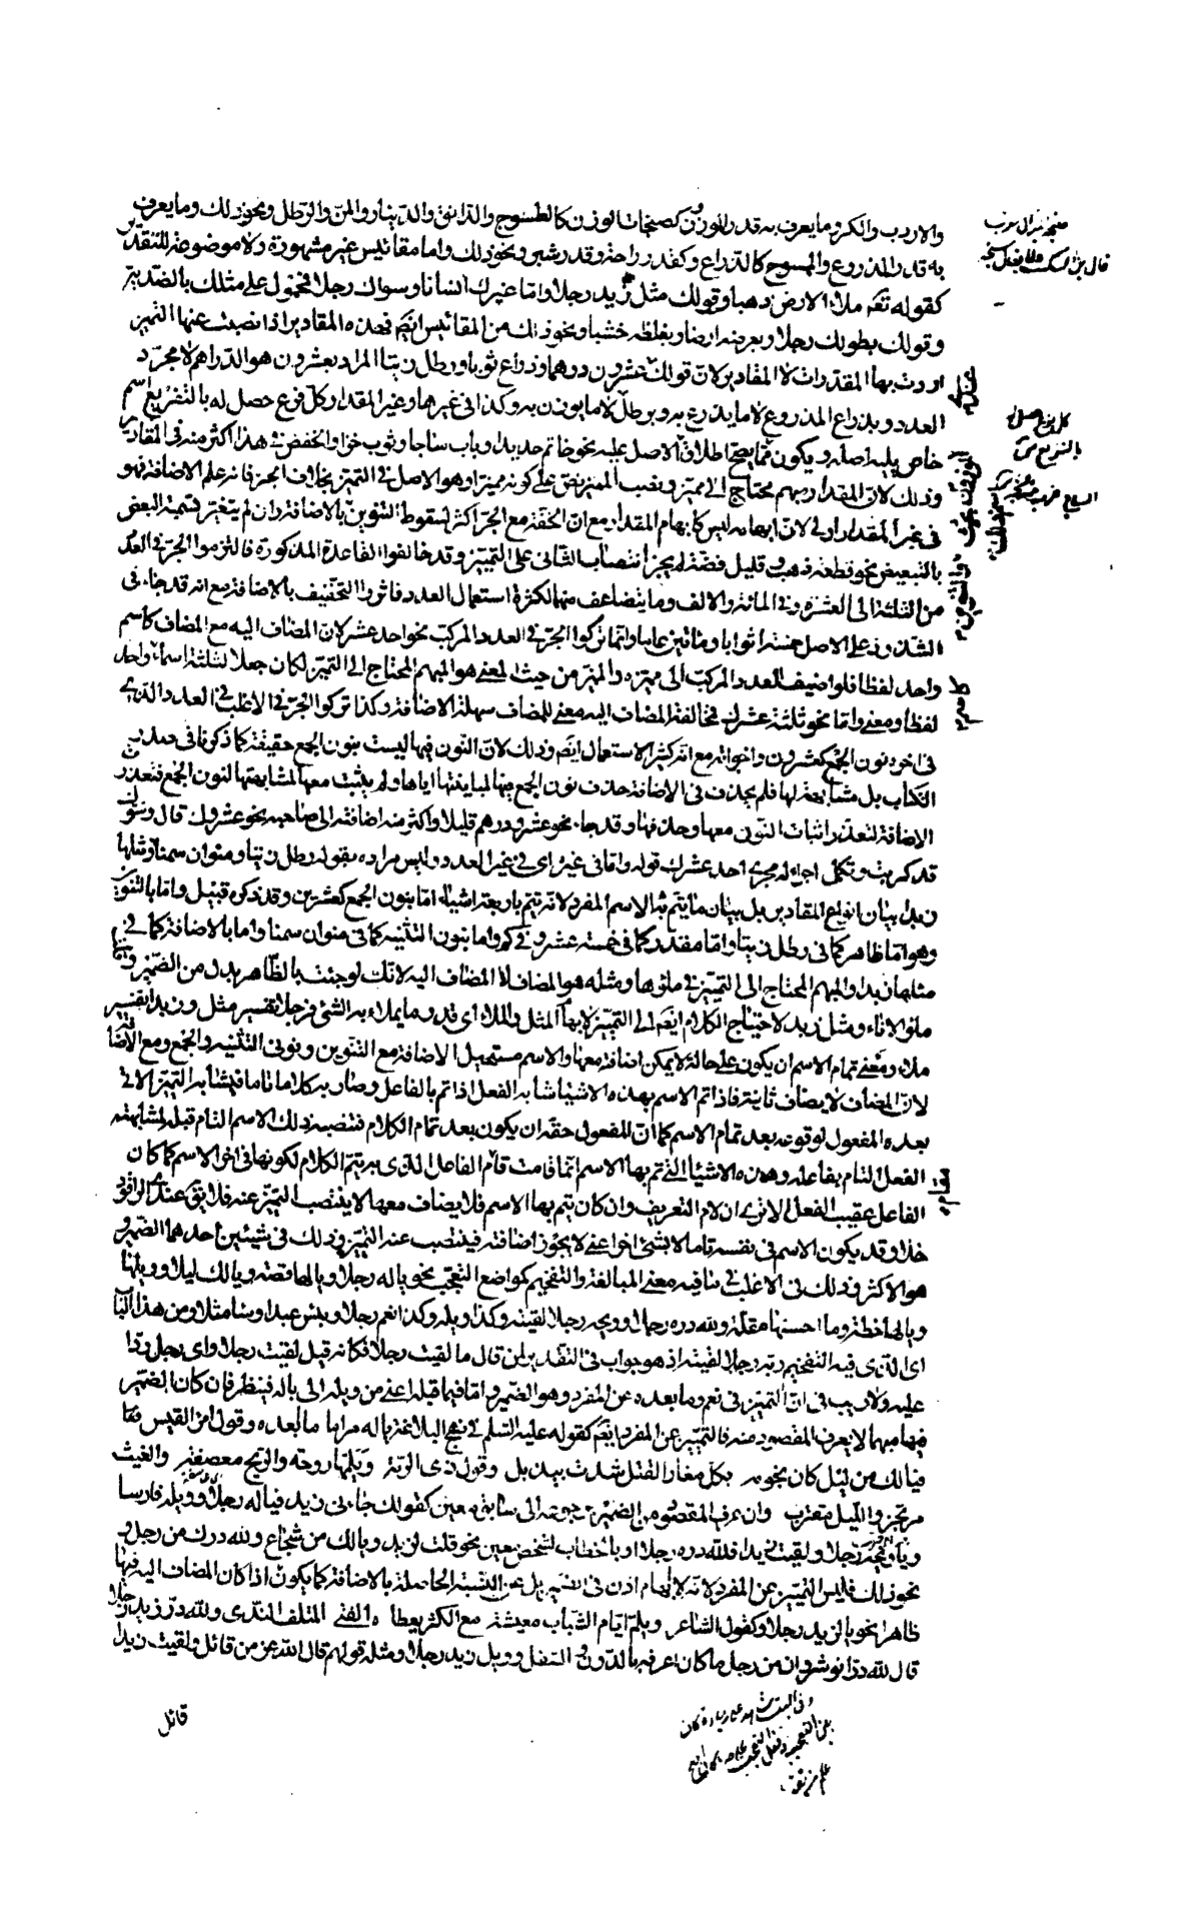 والاردب والكر وما يعرف به قدر الموزون كصنجات الوزن كالطسوج والدانق والدينار والمن والرطل ونحو ذلك وما يعرف
به قدر المذروع والممسوح كالذراع وكقدر راحة وقدر شبر ونحو ذلك واما مقائيس غير مشهورة ولا موضوعة للتقدير
كقوله تعم ملاء الارض ذهبا وقولك مثل زيد رجلا واما غيرك انسانا وسواك رجلا فمحمول على مثلك بالضدية
وقولك بطولك رجلا وبعرضه ارضا وبغلظه خشبا ونحو ذلك من المقائيس ايضم فهذه المقادير اذا نصبت عنها التميز
اردت بها المقدرات لا المقادير لان قولك عشرون درهما وذراع ثوبا ورطل زيتا المراد بعشرون هو الدراهم لا مجرد
العدد وبذراع المذروع لا ما يذرع به وبرطل لا ما يوزن به وكذا في غيرها وغير المقدار كل فرع حصل له بالتفريع اسم
خاص يليه اصله ويكون مما يصح اطلاق الاصل عليه نحو خاتم حديدا وباب ساجا وثوب خزا والخفض في هذا اكثر منه في المقادير
وذلك لان المقدار مبهم محتاج الى مميز ونصب المميز نص على كونه مميزا وهو الاصل في التميز بخلاف الجر فانه علم الاضافة فهو
في غير المقدار اولى لان ابهامه ليس كابهام المقدار مع ان الخفة مع الجر اكثر لسقوط التنوين بالاضافة وان لم يتغير تسمية البعض
بالتبعيض نحو قطعة ذهب وقليل فضة لم يجز انتصاب الثاني على التميز وقد خالفوا القاعدة المذكورة فالتزموا الجر في العدد
من الثلثة الى العشرة وفي المائة والالف وما يتضاعف منهما لكثرة استعمال العدد فاثروا التخفيف بالاضافة مع انه قد جاء في
الشذوذ على الاصل خمسة اثوابا ومائتين عاما وانما تركوا الجر في العدد المركب نحو احد عشر لان المضاف اليه مع المضاف كاسم
واحد لفظا فلو اضيف العدد المركب الى مميزه والمميز من حيث المعنى هو المبهم المحتاج الى التميز لكان جعلا لثلثة اسماء واحدا
لفظا ومعنى واما نحو ثلثة عشرك فمخالفة المضاف اليه معنى للمضاف سهلة الاضافة وكذا تركوا الجر في الاغلب في العدد الذي
في اخره نون الجمع كعشرون واخواته مع انه كثير الاستعمال ايضم وذلك لان النون فيها ليست بنون الجمع حقيقة كما ذكرنا في صدر
الكتاب بل مشابهة لها فلم يحذف في الاضافة حذف نون الجمع فيها لمباينتها اياها ولم يثبت معها لمشابهتها لنون الجمع فتعذر
الاضافة لتعذر اثبات النون معها وحذفها وقد جاء نحو عشرو درهم قليلا واكثر منه اضافته الى صاحبه نحو عشروك قال
قد كربت وتكمل اجراء له مجرى احد عشرك قوله واما في غيره اى في غير العدد وليس مراده بقوله رطل زيتا ومنوان سمنا ومثلها
زبدا بيان انواع المقادير بل بيان ما يتم به الاسم المفرد لانه يتم باربعة اشياء اما بنون الجمع كعشرين وقد ذكره قبل واما بالتنوين
وهو اما ظاهر كما في رطل زيتا واما مقدر كما في خمسة عشر وفي كم واما بنون التثنية كما في منوان سمنا واما بالاضافة كما في
مثلها زبدا والمبهم المحتاج الى التميز في ملؤها ومثله هو المضاف لا المضاف اليه لانك لو جئت بالظاهر بدل من الضمير
ملؤ الاناء ومثل زيد لاحتياج الكلام ايضم الى التميز لابهام المثل والملاء اى قدر ما يملاء به الشئ فرجلا تفسير مثل وزبدا تفسير
ملاء ومعنى تمام الاسم ان يكون على حالة لا يمكن اضافته معها والاسم مستحيل الاضافة مع التنوين ونوني التثنية والجمع ومع الاضافة
لان المضاف لا يضاف ثانية فاذا تم الاسم بهذه الاشياء شابه الفعل اذا تم بالفاعل وصار به كلاما تاما فيشابه التميز الاتي
بعده المفعول لوقوعه بعد تمام الاسم كما ان المفعول حقه ان يكون بعد تمام الكلام فتنصبه ذلك الاسم التام قبله لمشابهته
الفعل التام بفاعله وهذه الاشياء التي تم بها الاسم انما قامت مقام الفاعل الذي به يتم الكلام لكونها في اخر الاسم كما كان
الفاعل عقيب الفعل الا ترى ان لام التعريف وان كان يتم بها الاسم فلا يضاف معها لا ينتصب التميز عنه فلا يق عندي الراقود
خلا وقد يكون الاسم في نفسه تاما لا بشئ اخر اعني لا يجوز اضافته فينتصب عنه التميز وذلك في شيئين احدهما الضمير و
هو الاكثر وذلك في الاغلب فيما فيه معنى المبالغة والتفخيم كمواضع التعجب نحو يا له رجلا ويا لها قصة ويا لك ليلا وويلمها
ويا لها خطة وما احسنها مقلة ولله دره رجلا وويحه رجلا لقيته وكذا ويله وكذا نعم رجلا وبئس عبدا وساء مثلا ومن هذا الباب
اى الذي فيه التفخيم ربه رجلا لقيته اذ هو جواب في التقدير لمن قال ما لقيت رجلا فكانه قيل لقيت رجلا واى رجل ردا
عليه ولا ريب في ان التميز في نعم وما بعده عن المفرد وهو الضمير واما فيما قبله اعني من ويله الى يا له فينظر فان كان الضمير
فيها مبهما لا يعرف المقصود منه فالتميز عن المفرد ايضم كقوله عليه السلم في نهج البلاغة يا له مراما ما ابعده وقول امرء القيس
فيا لك من ليل كان نجومه بكل مغار الفتل شدت بيذبل وقول ذي الرمة ويلمها روحة والريح معصفة والغيث
مرتجز والليل مقترب وان عرف المقصود من الضمير برجوعه الى سابق معين كقولك جاءني زيد فيا له رجلا وويله فارسا
ويا ويحه رجلا ولقيت زيدا فلله دره رجلا او بالخطاب لشخص معين نحو قلت لزيد ويا لك من شجاع ولله درك من رجل و
نحو ذلك فليس التميز عن المفرد لانه لا ابهام اذن في الضمير بل عن النسبة الحاصلة بالاضافة كما يكون اذا كان المضاف اليه فيها
ظاهرا نحو يا لزيد رجلا وكقول الشاعر ويلم ايام الشباب معيشة مع الكثر يعطاه الفتى المتلف الندى ولله در زيد رجلا
قال لله در انوشروان من رجل ما كان اعرفه بالدون والسفل وويل زيد رجلا ومثله قولهم قال الله عز من قائل ولقيت زيدا
قائل